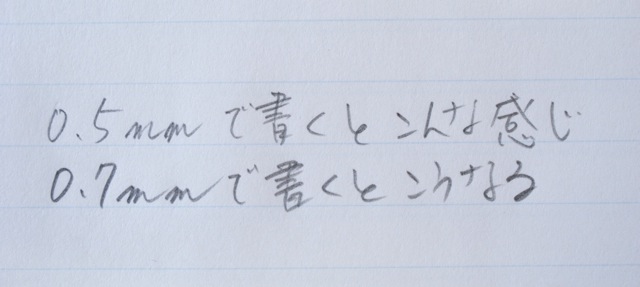 0.5mmで書くとこんな感じ
0.7mmで書くとこうなる